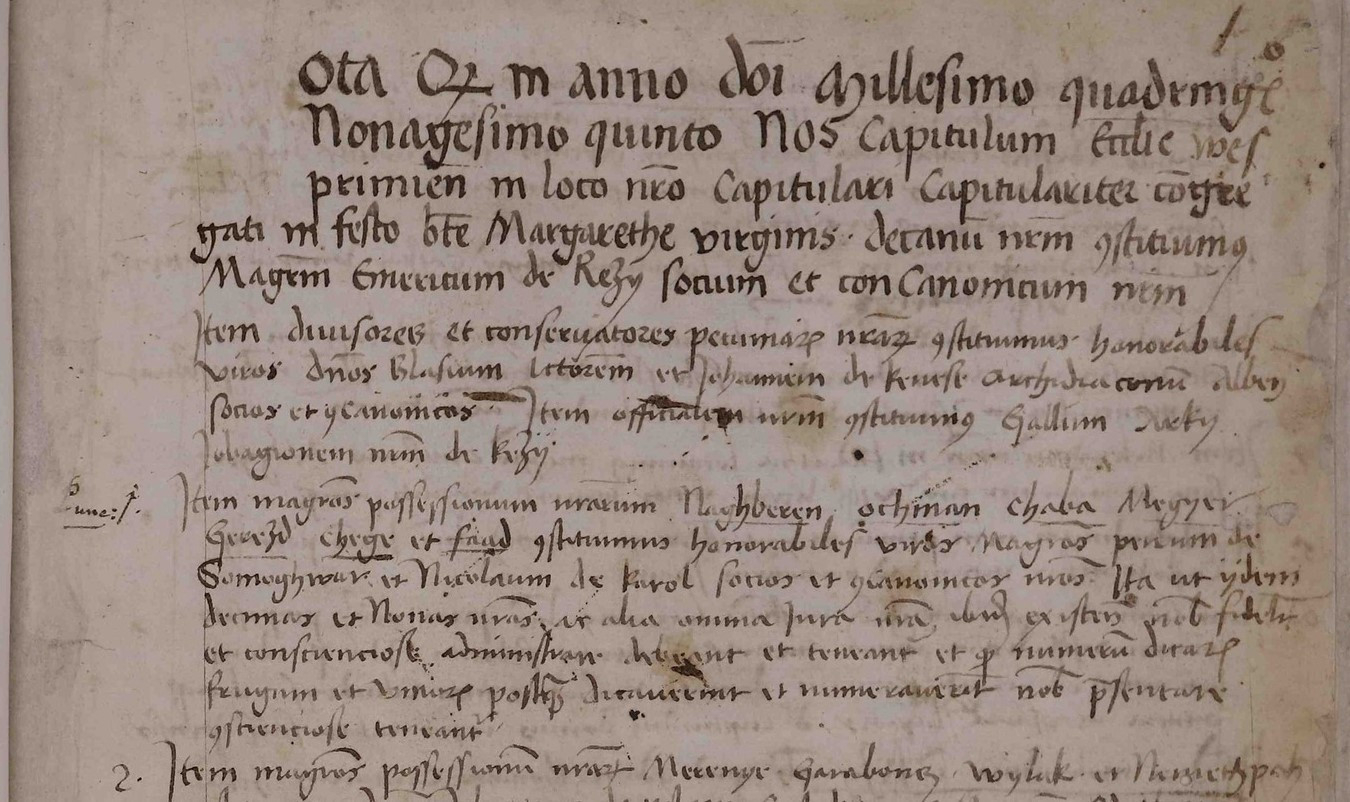 Ota Qz in anno doi Millesimo quadringe
Nonagesimo quinto Nos Capitulum Ecclie wes
primien in loco nro Capitulari Capitulariter congre
gati in festo bte Margarethe virginis. decanu nrm 9stituimus
Magrm Emericum de Kezy socium et conCanonicum nrm
Item divisores et conservatores pecuniarz nrarz 9stituimus honorabiles
viros dnos Blasium lctorem et Johannem de kenese Archidiaconu Alben
socios et 9canonicos Item officialem nrm 9stituimus Gallum
Jobagionem nrm de kezy
Item magros possessionum nrarum Naghberen ochman Chaba Megyer
Gerezd Chege et faad 9stituimus honorabiles viros Magros petrum de
Somoghwar et Nicolaum de karol socios et 9canonicos nros Ita ut ijdem
decimas et Nonas nras ac alia omnia Jura nra ibid existen nob fidelr
et conscienciose administrare debeant et teneant et per numeru dicarz
frugum et vinorz postq dicaverint et numeraverint nob psentare
9scienciose teneant
2. Item magros possessionu nrarz Merenye Garabonez wylak et Nemethpath